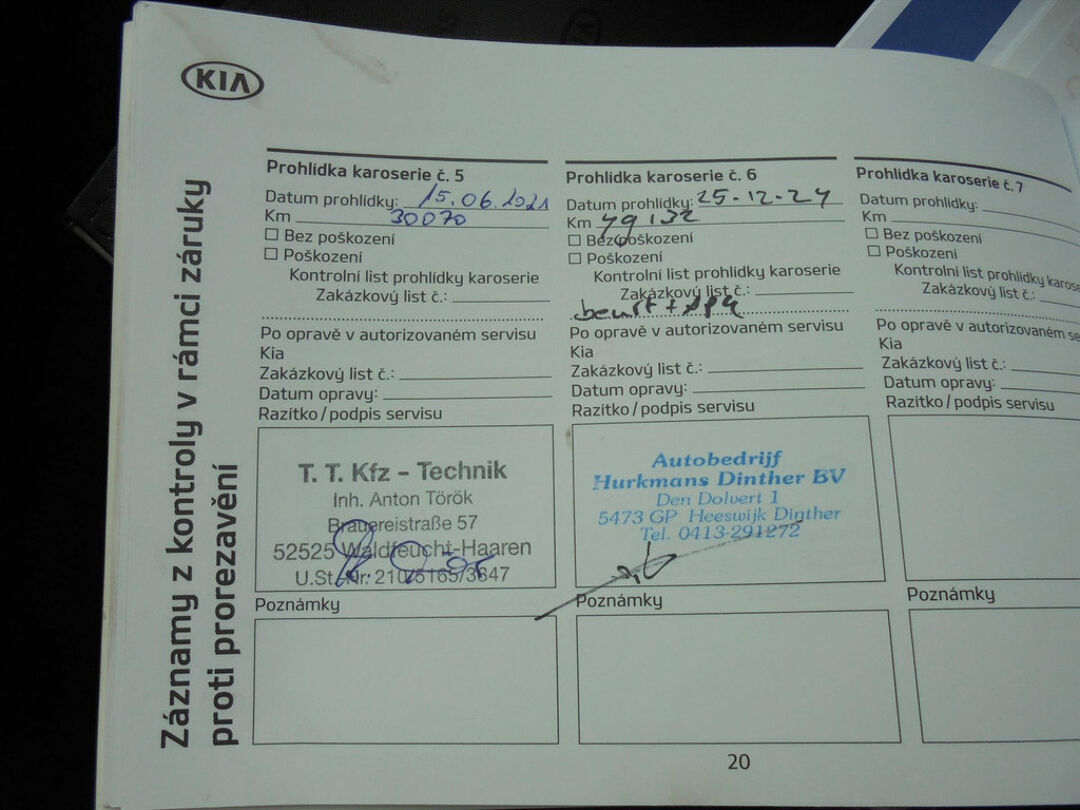 KIA
Záznamy z kontroly v rámci záruky
proti prorezavění
Prohlídka karoserie č. 5
Datum prohlídky: 15.06.2021
Km 30070
Bez poškození
Poškození
Kontrolní list prohlídky karoserie
Zakázkový list č.:
Po opravě v autorizovaném servisu
Kia
Zakázkový list č.:
Datum opravy:
Razítko / podpis servisu
T. T. Kfz – Technik
Inh. Anton Török
Brauereistraße 57
52525 Waldfeucht-Haaren
U.St.-Nr. 210/5165/3847
Poznámky
Prohlídka karoserie č. 6
Datum prohlídky: 25-12-24
Km 49132
Bez poškození
Poškození
Kontrolní list prohlídky karoserie
Zakázkový list č.:
Po opravě v autorizovaném servisu
Kia
Zakázkový list č.:
Datum opravy:
Razítko / podpis servisu
Autobedrijf
Hurkmans Dinther BV
Den Dolvert 1
5473 GP Heeswijk Dinther
Tel. 0413-291272
Poznámky
Prohlídka karoserie č. 7
Datum prohlídky:
Km
Bez poškození
Poškození
Kontrolní list prohlídky karose
Zakázkový list č.:
Po opravě v autorizovaném se
Kia
Zakázkový list č.:
Datum opravy:
Razítko / podpis servisu
Poznámky
20